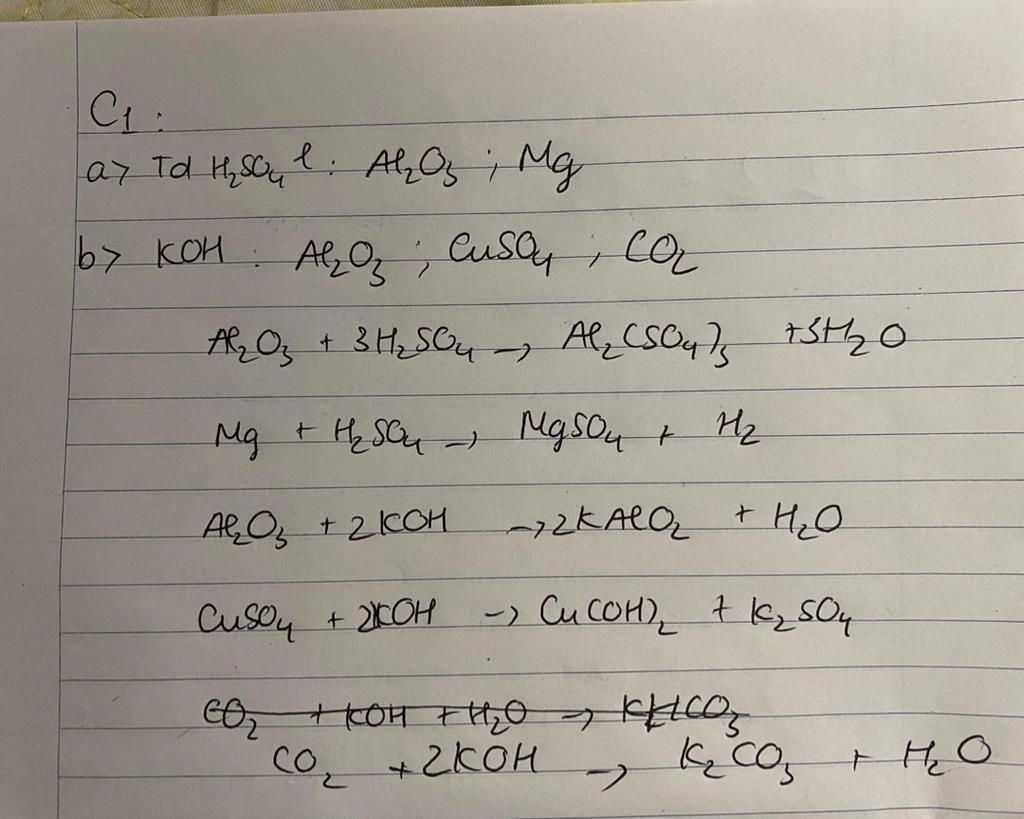 C1 :
a> Td H₂SO₄ l : Al₂O₃ ; Mg
b> KOH : Al₂O₃ ; CuSO₄ , CO₂
Al₂O₃ + 3H₂SO₄ → Al₂(SO₄)₃ + 3H₂O
Mg + H₂SO₄ → MgSO₄ + H₂
Al₂O₃ + 2KOH → 2KAlO₂ + H₂O
CuSO₄ + 2KOH → Cu(OH)₂ + K₂SO₄
CO₂ + KOH + H₂O → KHCO₃
CO₂ + 2KOH → K₂CO₃ + H₂O